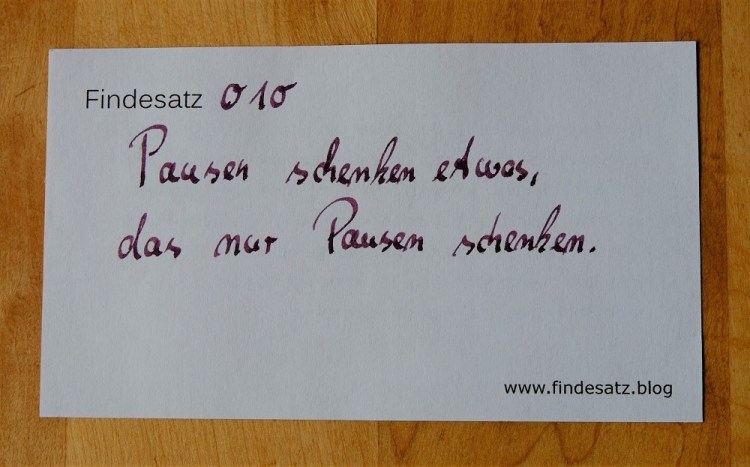 Findesatz 010
Pausen schenken etwas,
das nur Pausen schenken.
www.findesatz.blog